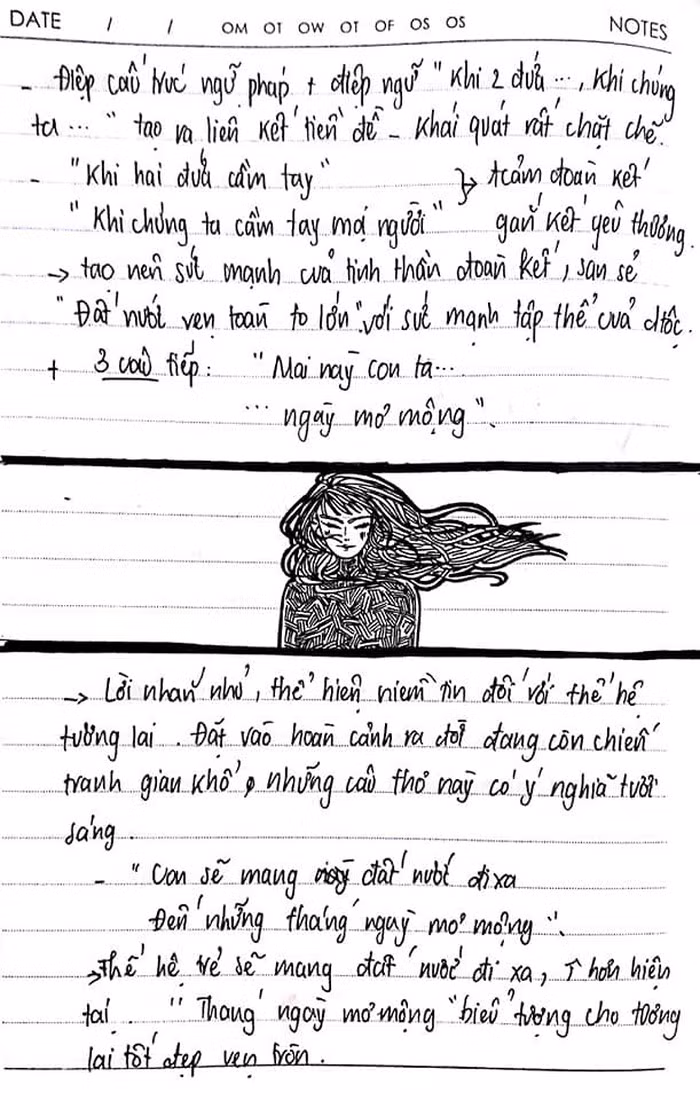 DATE / / OM OT OW OT OF OS OS NOTES
- Điệp cấu trúc ngữ pháp + điệp ngữ "Khi 2 đứa ..., Khi chúng
ta ... " tạo ra liên kết tiền đề - khái quát rất chặt chẽ.
- "Khi hai đứa cầm tay" } t/cảm đoàn kết
"Khi chúng ta cầm tay mọi người" gắn kết yêu thương.
-> tạo nên sức mạnh của tinh thần đoàn kết, san sẻ
"Đất nước vẹn toàn to lớn" với sức mạnh tập thể của dtộc.
+ 3 câu tiếp: "Mai này con ta...
... ngày mơ mộng".
-> Lời nhắn nhủ, thể hiện niềm tin đối với thế hệ
tương lai. Đặt vào hoàn cảnh ra đời đang còn chiến
tranh gian khổ, những câu thơ này có ý nghĩa tươi
sáng.
- "Con sẽ mang đất nước đi xa
Đến những tháng ngày mơ mộng".
-> Thế hệ trẻ sẽ mang đất nước đi xa, ↑ hơn hiện
tại. "Tháng ngày mơ mộng" biểu tượng cho tương
lai tốt đẹp vẹn tròn.